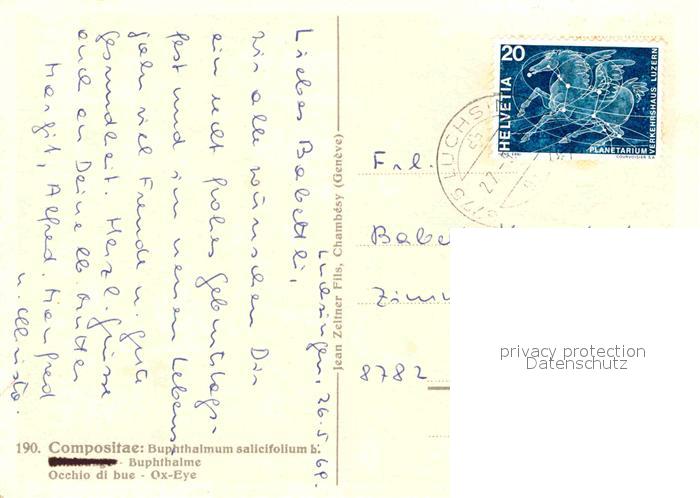 Luchsingen, 26.5.69.
Liebes Babettli,
wir alle wünschen Dir
ein recht frohes Geburtstags-
fest und im neuen Lebens-
jahr viel Freude u. gute
Gesundheit. Herzl. Grüsse
auch an Deine lb. Mutter
Margrit, Alfred, Manfred
u. Christa.
190. Compositae: Buphthalmum salicifolium L.
- Buphthalme
Occhio di bue - Ox-Eye
Jean Zellner Fils, Chambésy (Genève)
20
HELVETIA
PLANETARIUM
VERKEHRSHAUS LUZERN
COURVOISIER S.A.
8775 LUCHSI
27.
Frl.
Babe
Zimm
8782
privacy protection
Datenschutz